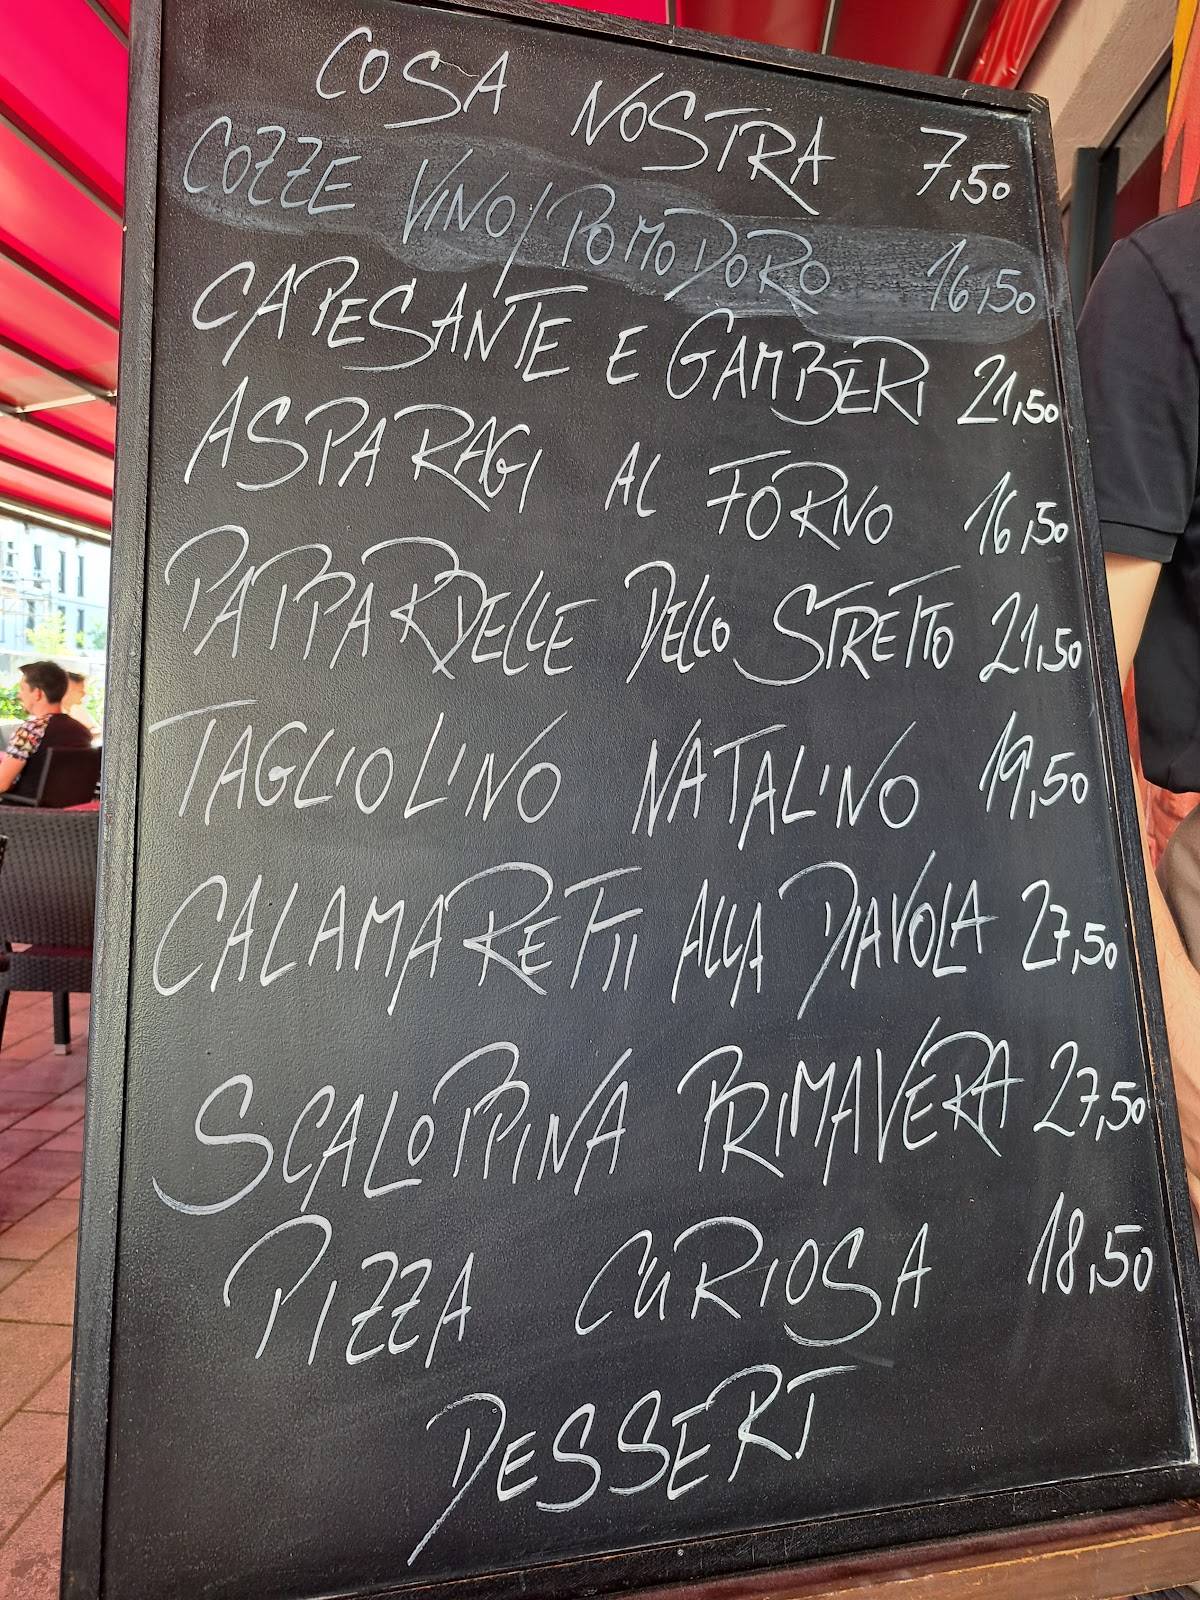 COSA NOSTRA 7,50
COZZE VINO/POMODORO 16,50
CAPESANTE E GAMBERI 21,50
ASPARAGI AL FORNO 16,50
PAPPARDELLE DELLO STRETTO 21,50
TAGLIOLINO NATALINO 19,50
CALAMARETTI ALLA DIAVOLA 27,50
SCALOPPINA PRIMAVERA 27,50
PIZZA CURIOSA 18,50
DESSERT